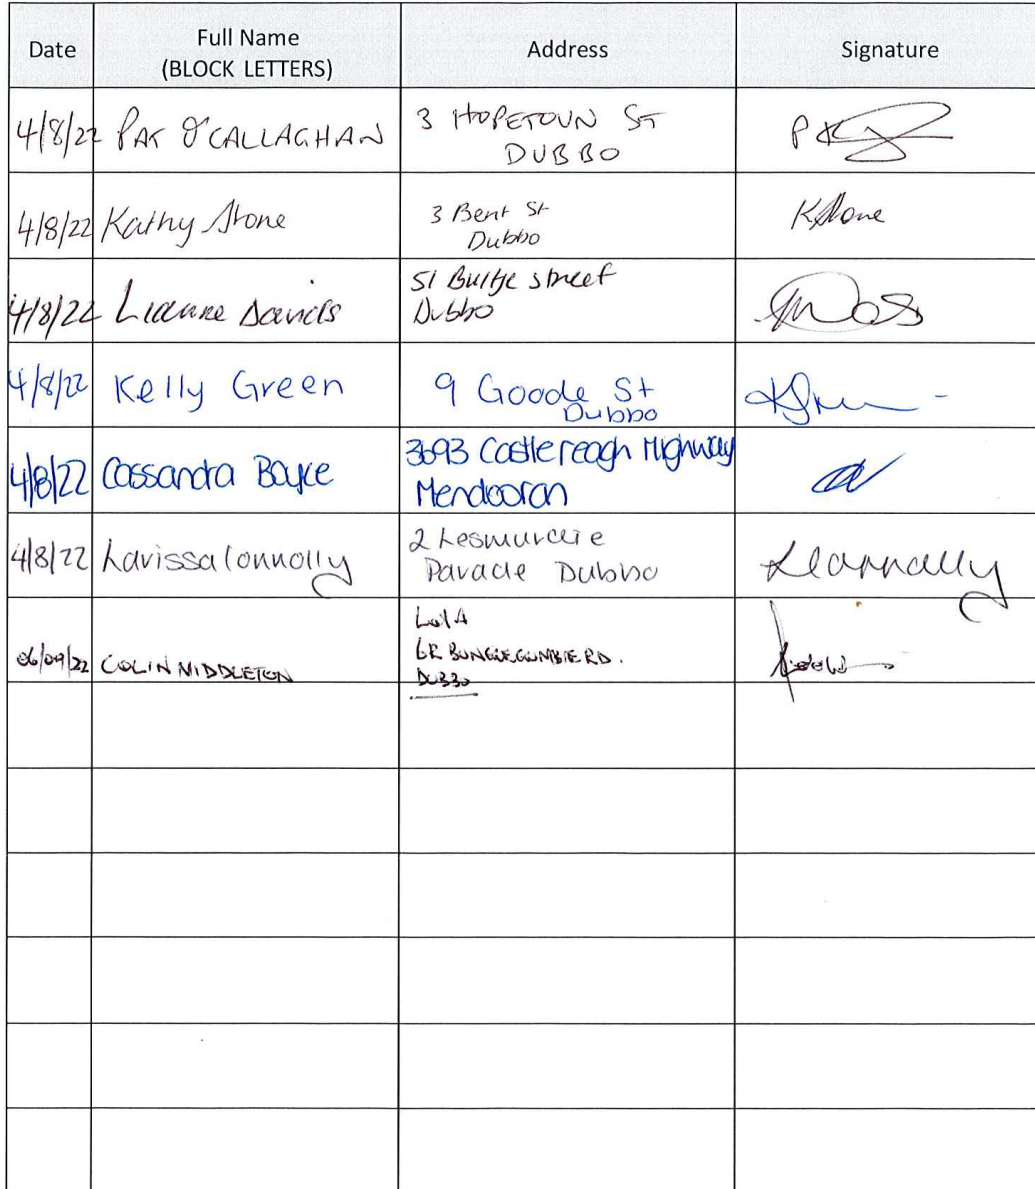 Date
Full Name
(BLOCK LETTERS)
Address
Signature
4/8/22 PAT O'CALLAGHAN
3 HOPETOUN ST
DUBBO
4/8/22 Kathy Stone
3 Bent St
Dubbo
KStone
4/8/22 Lianne Davids
51 Bultje street
Dubbo
4/8/22 Kelly Green
9 Goode St
Dubbo
4/8/22 Cassandra Boyce
3693 Castlereagh Highway
Mendooran
4/8/22 Larissa Connolly
2 Lesmurdie
Parade Dubbo
LConnolly
06/09/22 COLIN MIDDLETON
Lot 4
LR BUNGLEGUMBIE RD.
DUBBO